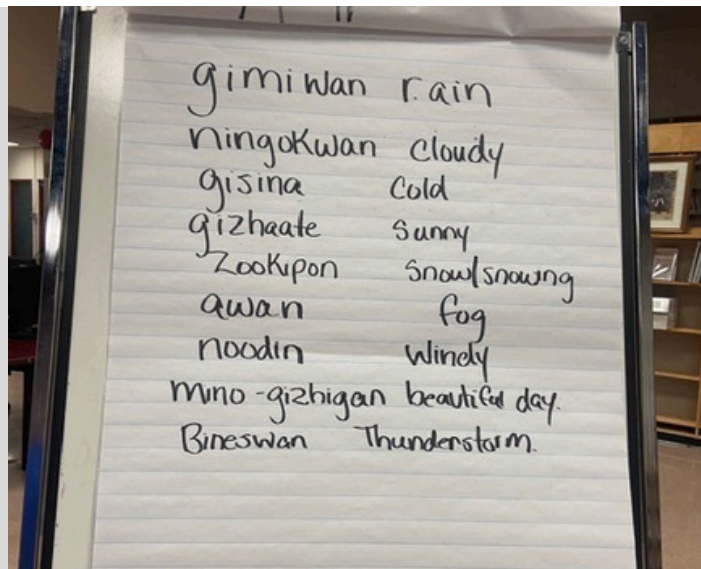 gimiwan rain
ningokwan cloudy
gisina cold
gizhaate sunny
Zookipon snow/snowing
awan fog
noodin windy
mino-gizhigan beautiful day.
Bineswan Thunderstorm.